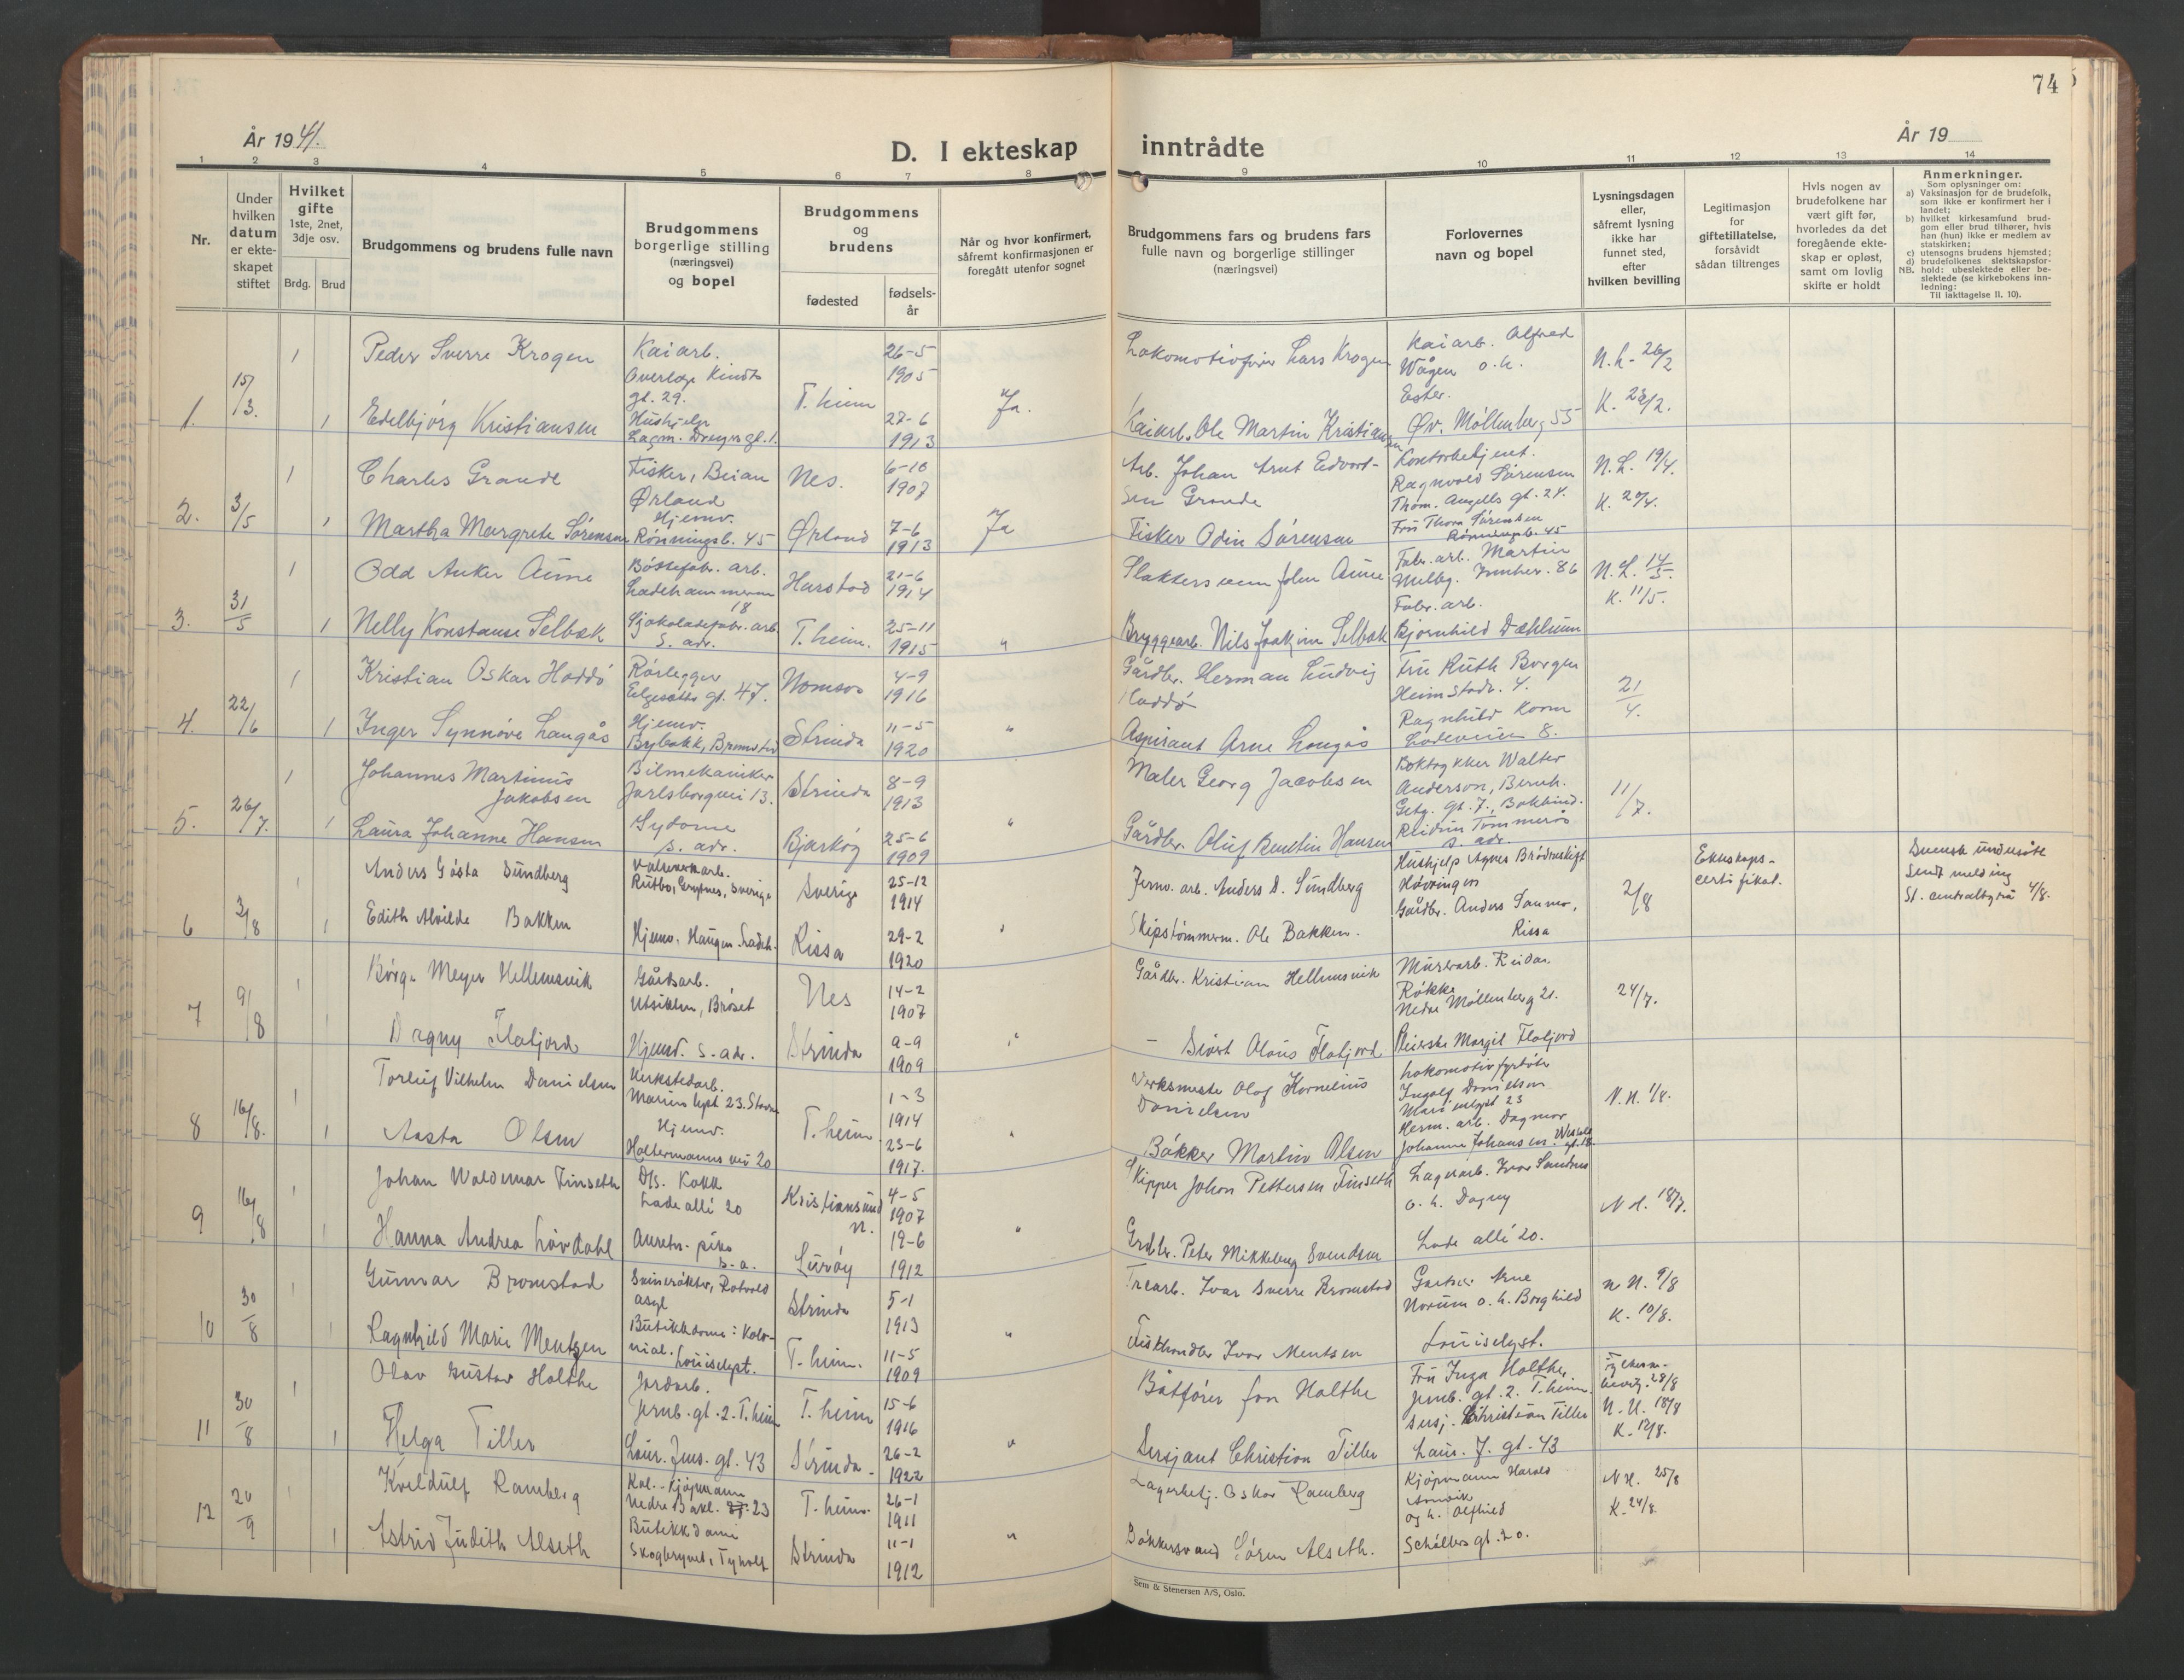 74
År 1941.
D. I ekteskap inntrådte
År 19
1 2 3 4 5 6 7 8 9 10 11 12 13 14
Nr.
Under hvilken datum er ekteskapet stiftet
Hvilket gifte
1ste, 2net, 3dje osv.
Brdg.
Brud
Brudgommens og brudens fulle navn
Brudgommens borgerlige stilling (næringsvei) og bopel
Brudgommens og brudens
fødested
fødselsår
Når og hvor konfirmert, såfremt konfirmasjonen er foregått utenfor sognet
Brudgommens fars og brudens fars fulle navn og borgerlige stillinger (næringsvei)
Forlovernes navn og bopel
Lysningsdagen eller, såfremt lysning ikke har funnet sted, efter hvilken bevilling
Legitimasjon for giftetillatelse, forsåvidt sådan tiltrenges
Hvis nogen av brudefolkene har vært gift før, hvorledes da det foregående ekteskap er opløst, samt om lovlig skifte er holdt
Anmerkninger.
Som oplysninger om:
a) Vaksinasjon for de brudefolk, som ikke er konfirmert her i landet;
b) hvilket kirkesamfund brudgom eller brud tilhører, hvis han (hun) ikke er medlem av statskirken;
c) utensogns brudens hjemsted;
d) brudefolkenes slektskapsforhold: ubeslektede eller beslektede (se kirkebokens innledning:
NB.
Til iakttagelse II. 10).
1. 15/3. 1 Peder Sverre Krogen Kaiarb. Overlæge Kindts gt. 29. T.heim 26-5 1905 Ja. Lokomotivfører Lars Krogen Kaiarb. Alfred Wågen o.h. Ester. N.L. 26/2
1 Edelbjörg Kristiansen Hushjelp Lagm. Dreyers gt. 1. 27-6 1913 Kaiarb. Ole Martin Kristiansen Øv. Möllenberg 55 K. 23/2.
2. 3/5 1 Charles Grande Fisker, Beian Ørland Nes. 6-10 1907 Arb. Johan Arnt Edvardsen Grande Kontorbetjent. Ragnvald Sørensen Thom. Angells gt. 24. N.L. 19/4.
1 Martha Margrete Sörensen Hjemv. Rönningsb. 45 Ørland 7-6 1913 Ja Fisker Odin Sörensen Frü Thora Sørensen Rönningsb. 45 K. 20/4.
3. 31/5 1 Odd Anker Aune Bössefabr. arb. Ladehammeren 18 Harstad 21-6 1914 Slaktersvenn John Aune Fabr. arb. Martin Melbg. Innher. 86 N.L. 14/5.
1 Nelly Konstanse Selbæk Sjokoladefabr. arb. s. adr. T.heim. 25-11 1915 " Bryggearb. Nils Joakim Selbæk Fabr. arb. Bjørnhild Dæhlinn K. 11/5.
4. 22/6 1 Kristian Oskar Haddö Rörlegger Elgesæter gt. 47. Namsos 4-9 1916 Gårdbr. Herman Ludvig Haddö Fru Ruth Borgen Heimstadv. 4. 21/4.
1 Inger Synnöve Langås Hjemv. Bybakk, Bromstad Strinda 11-5 1920 " Aspirant Arne Langås Ragnhild Korm Ladeveien 8.
5. 26/7. 1 Johannes Martinus Jakobsen Bilmekaniker Jarlsborgvei 13. Strinda 8-9 1913 Maler Georg Jacobsen Boktrykker Walter Anderson, Bernh. Getz. gt. 7, Bokbind. 11/7.
1 Laura Johanne Hansen Sydame s. adr. Bjarköy 25-6 1909 " Gårdbr. Oluf Bentin Hansen Reidun Tömmerås s. adr.
6 3/8 Anders Gösta Sundberg Valseverkarb. Rutbo, Sverige Sverige 25-12 1914 Jernv. arb. Anders D. Sundberg Hushjelp Agnes Hövringen 2/8 Ekteskaps-certifikat. Svensk undersåte Sendt melding St. centralbyrå 4/8.
1 Edith Alvilde Bakken Hjemv. Haugen. Ladeh. Rissa 29-2 1920 " Skipstömmerm. Ole Bakken. Gårdbr. Anders Sanner, Rissa
7 9/8 1 Börge Meyer Hellemsvik Gårdsarb. Utsikten, Bröset Nes 14-2 1907 Gårdbr. Kristian Hellemsvik Murerarb. Reidar Røkke Nedre Möllenberg 21. 24/7.
1 Dagny Flatjord Hjemv. s. adr. Strinda 9-9 1909 " — Sivert Olaus Flatjord Pleierske Margit Flatjord
8 16/8. 1 Torleif Vilhelm Danielsen Verkstedarb. Marienlyst 23. Stavne T.heim. 1-3 1914 Verksmester Olaf Kornelius Danielsen Lokomotivfyrböter Ingolf Danielsen Marienlyst 23 N.N. 1/8.
1 Aasta Olsen Hjemv. Haltermanns vei 20 23-6 1917. " Bakker Martin Olsen Herm. arb. Dagmar Johanne Johansen. Wessels gt. 18.
9 16/8 1 Johan Waldemar Finseth D/s. Kokk Lade allé 20 Kristiansund N. 4-5 1907 Skipper Johan Pettersen Finseth Lagerarb. Ivar Sandnes o. h. Dagny N.N. 18/7.
1 Hanna Andrea Lövdahl s. a. Luröy 19-6 1912 " Grdbr. Peter Mikkelborg Svendsen Lade allé 20.
10 30/8 1 Gunnar Bromstad Svinerökter, Rotvold asyl Strinda 5-1 1913 Trearb. Ivar Sverre Bromstad Gartner Arne Norum o. h. Borghild N.N. 9/8
1 Ragnhild Marie Mentzen Butikkdame i Kolonial. Louiselyst. T.heim. 11-5 1909 " Fiskhandler Ivar Mentsen Louiselyst. K. 10/8.
11 30/8 1 Olav Gustav Holthe Jordarb. Jernb. gt. 2. T.heim T.heim 15-6 1916 Båtförer Jon Holthe Fru Inga Holthe, Jernb. gt. 2. T.heim. 28/8
1 Helga Tiller Laur. Jens. gt. 43 Strinda 26-2 1922 " Sersjant Christian Tiller Sersj. Christian Tiller Laur. J. gt. 43 N.N. 18/8 K. 12/8.
12 20/9 1 Kveldulf Ramberg Kol.-Kjöpmann Nedre Bakl. 23 T.heim. 26-1 1911 Lagerbetj. Oskar Ramberg Kjöpmann Harald Arnvik og h. Alfhild N.N. 25/8
1 Astrid Judith Alseth Butikkdame Skogbrynet, Tyholt Strinda 11-1 1912 " Bakkersvend Sören Alseth. Schöllers gt. 20. K. 24/8.
Sem & Stenersen A/S, Oslo.